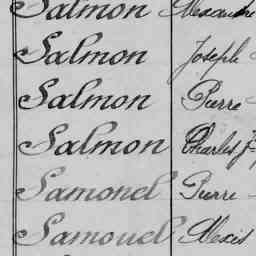 Salmon Alexandre
Salmon Joseph
Salmon Pierre
Salmon Charles J
Samonel Pierre
Samouel Alexis